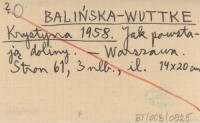 20
BALIŃSKA-WUTTKE
Krystyna 1958. Jak powsta-
ją doliny. — Warszawa.
Stron 61, 3 nlb., il. 14x20 cm
BT/008/0525